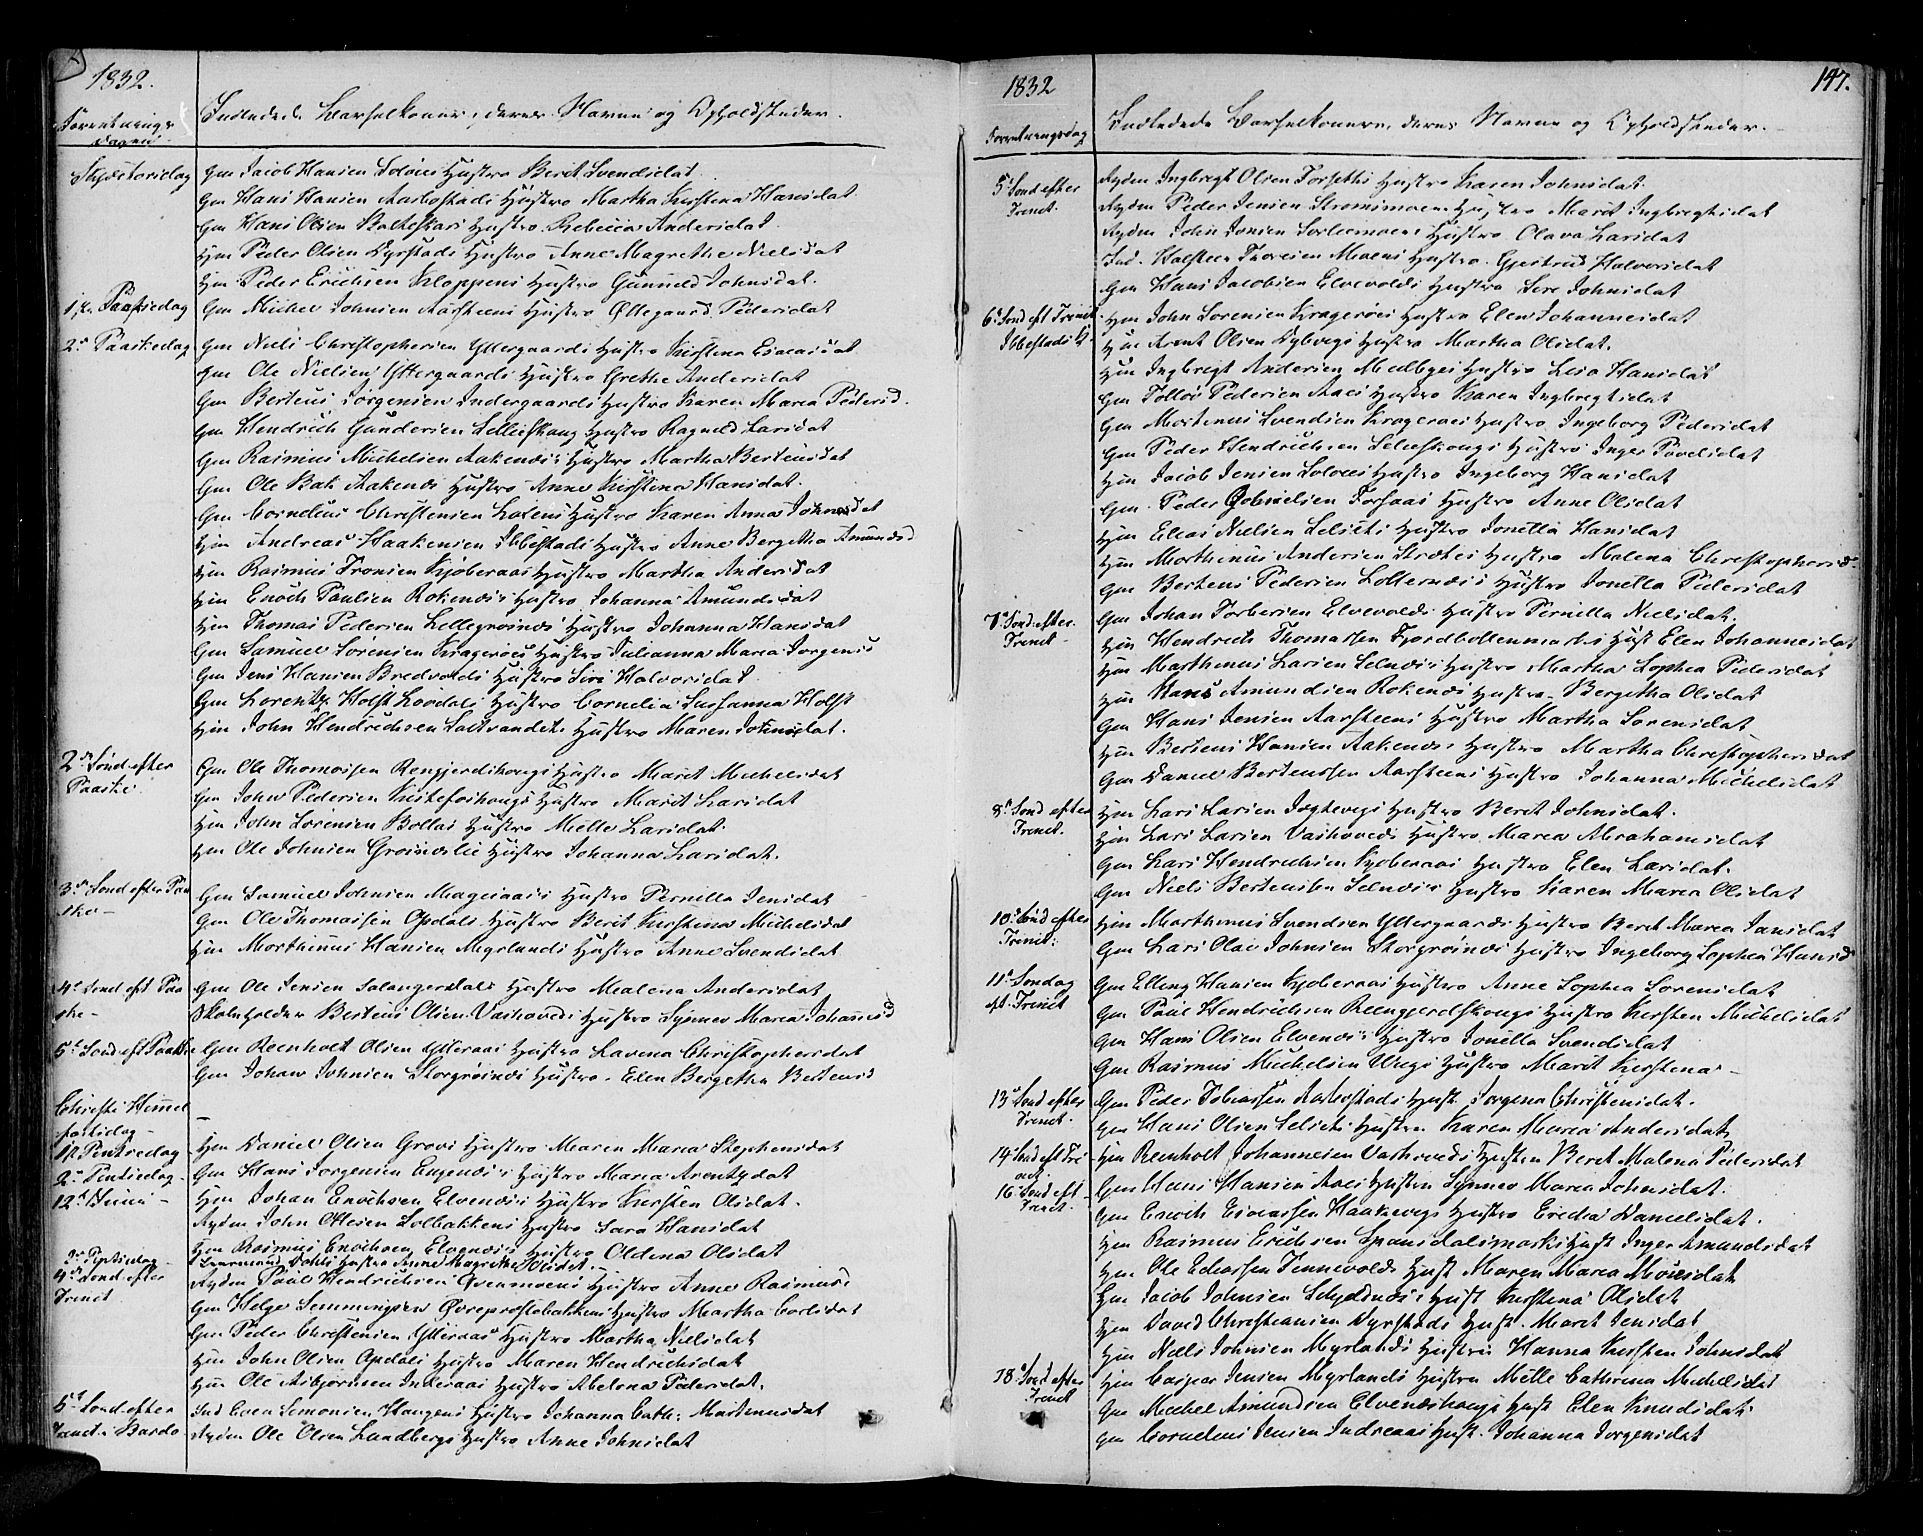 1832.
Forretnings
Dagen
Indledede Barselkoner, deres Navne og Opholdsteder.
Skjærtorsdag
Gm Jacob Hansen Soløies Hustro Berit Svendsdat
Gm Hans Hansen Aarbostads Hustro Martha Kirstina Hansdat
Gm Hans Olsen Balteskars Hustro Rebecca Andersdat
Hm Peder Olsen Dyrstads Hustro Anne Magrethe Nielsdat
Hm Peder Erichsen Kloppens Hustro Gunneld Johnsdat.
1ste Paaskedag
Gm Michel Johnsen Aarsteens Hustro Øllegaard Pedersdat
2d Paaskedag
Gm Niels Christophersen Yttergaards Hustro Kirstina Esaiasdat
Gm Ole Nielsen Yttergaards Hustro Grethe Andersdat
Gm Berteus Jørgensen Indergaards Hustro Karen Maria Pedersd.
Gm Hendrich Gundersen Lilleskoug Hustro Ragneld Larsdat
Gm Rasmus Michelsen Aakenæs's Hustro Martha Berteusdat
Gm Ole Bak Aakenæs Hustro Anne Kirstina Hansdat.
Gm Cornelius Christensen Hustro Karen Anna Johnsdat
Hm Andreas Haakensen Ibbestads Hustro Anne Bergethe Amundsd
Hm Rasmus Tronsen Kjøberaas Hustro Martha Andersdat
Hm Enoch Paulsen Rokenæs's Hustro Johanna Amundsdat
Hm Thomas Pedersen Lillegrøinæs Hustro Johanna Hansdat
Gm Samuel Sørensen Kragerøes Hustro Julianna Maria Jørgensd
Gm Jens Hansen Bredvolds Hustro Siri Halvorsdat.
Gm Lorentz Holst Løvdals Hustro Cornelia Susanna Holst
Hm John Hendrichsen Saltvandets Hustro Maren Johnsdat.
2d Sønd. efter
Paaske
Gm Ole Thomassen Rengjerdskougs Hustro Marit Michelsdat
Gm John Pedersen Kistefoshougs Hustro Marit Larsdat
Hm John Sørensen Bollas Hustro Mille Larsdat.
Hm Ole Johnsen Grøsnæslie Hustro Johanna Larsdat.
3d Sønd efter Paa
ske
Gm Samuel Johnsen Mageraas's Hustro Pernilla Jensdat
Gm Ole Thomassen Opdals Hustro Berit Kirstina Michelsdat
Hm Morthinus Hansen Myrlands Hustro Anne Svendsdat
4d Sønd eft Paa
ske
Gm Ole Jensen Salangerdals Hustro Malena Andersdat
Skoleholder Berteus Olsen Vashoveds Hustro Synnev Maria Johannesd
5t Sønd eft Paaske
Gm Reenholt Olsen Ytteraas Hustro Lavina Christophersdat
Gm Johan Johnsen Storgrøinæs Hustro Elen Bergetha Berteusd
Christi Himmel
fartsdag
1st Pintsedag
Hm Daniel Olsen Grovs Hustro Maren Maria Stephensdat
2d Pintsedag
Gm Hans Jørgensen Engenæs's Hustro Maria Arentzdat
12t Junii
Hm Johan Enochsen Elvenæs's Hustro Kirsten Olsdat.
Rydm John Ottesen Solbakkens Hustro Sara Hansdat
Hm Rasmus Enochsen Elvenæs's Hustro Oldena Olsdat
4d Sønd efter
Trinit.
Rydm Paul Hendrichsen Qvernmoens Hustro Anne Rasmusd
Gm Helge Semmingsen Øvreprestebakkens Hustro Martha Carlsdat
Gm Peder Christensen Ytteraas Hustro Martha Nielsdat
Hm John Olsen Opdals Hustro Maren Hendrichsdat
Hm Ole Asbjørnsen Inderaas Hustro Abelona Pedersdat.
5t Sønd efter
Trinit i Bardo
Ind Even Simonsen Haugens Hustro Johanna Cath: Matheusdat
Rydm Ole Olsen Lundbergs Hustro Anne Johnsdat
1832
147.
Forretningsdag
Indledede Barselkoners, deres Navne og Opholdsteder.
5t Sønd efter
Trinit.
Rydm Ingbregt Olsen Forseths Hustro Karen Johnsdat.
Rydm Peder Jensen Strømsmoens Hustro Marit Ingbregtsdat
Rydm John Jonsen Sørliemoens Hustro Olava Larsdat
Ind. Halsteen Thoresen Moens Hustro Gjertrud Halvorsdat
Gm Hans Jacobsen Elvevolds Hustro Sire Johnsdat
6t Sønd eft Trinit
Ibbestads K
Hm John Sørensen Kragerøes Hustro Elen Johannesdat
Hm Arent Olsen Dybvigs Hustro Martha Olsdat.
Hm Ingbregt Andersen Melbyes Hustro Lisa Hansdat
Gm Tollev Pedersen Aaes Hustro Karen Ingbregtsdat
Gm Morthinus Svendsen Kragerøes Hustro Ingeborg Pedersdat
Gm Peder Hendrichsen Lilleskougs Hustro Inger Povelsdat
Hm Jacob Jensen Soløies Hustro Ingeborg Hansdat
Gm Peder Forsaas Hustro Anne Olsdat
Hm Elias Nielsen Selsets Hustro Jonetta Hansdat
Hm Morthinus Andersen Hustro Malena Christophersd.
Gm Berteus Pedersen Lotternæs's Hustro Jonetta Pedersdat
7d Sønd. efter
Trinit.
Gm Johan Torbersen Elvevolds Hustro Pernilla Nielsdat.
Hm Hendrich Thomassen Fjordbottenmarks Hust Elen Johannesdat
Hm Marthinus Larsen Selnæs's Hustro Martha Sophia Pedersdat
Hm Hans Amundsen Rokenæs Hustro Bergetha Olsdat
Gm Hans Jensen Aarsteens Hustro Martha Sørensdat
Hm Berteus Hansen Aakenæs Hustro Martha Christophersdat
Gm Daniel Berteussen Aarsteens Hustro Johanna Michelsdat
8d Sønd efter
Trinit.
Hm Lars Larsen Jægtevigs Hustro Berit Johnsdat.
Hm Lars Larsen Vashoveds Hustro Maria Abrahamsdat
Gm Lars Hendrichsen Kjøberaas Hustro Elen Larsdat.
Gm Niels Berteussen Selnæs's Hustro Karen Maria Olsdat
10d Sønd efter
Trinit:
Hm Marthinus Svendsen Yttergaards Hustro Berit Maria Jansdat
Gm Lars Olai Johnsen Storgrøinæs Hustro Ingeborg Sophia Hansd
11t Søndag
eft. Trinit
Gm Elling Hansen Kjøberaas Hustro Anne Sophia Sørensdat
Gm Paul Hendrichsen Rengjerdskougs Hustro Kirsten Michelsdat
Gm Hans Olsen Elvenæs's Hustro Jonetta Svendsdat
Gm Rasmus Michelsen Wiigs Hustro Marit Kirstena
13d Sønd efter
Trinit.
Gm Peder Tobiassen Aarbostads Hust. Jørgena Christensdat.
Gm Hans Olsen Selsets Hustro Karen Maria Andersdat
14d Sønd eft Tri
nit.
Hm Reinholt Johannesen Vashoveds Hustro Berit Malena Pedersdat
16d Sønd eft
Trinit.
Gm Hans Hansen Aaes Hustro Synnev Maria Johnsdat.
Gm Enoch Esaiassen Haukevigs Hustro Eredia Danielsdat.
Hm Rasmus Erichsen Spansdalsmarks Hust Inger Amundsdat
Hm Ole Eliassen Tennevolds Hust Maren Maria Mosesdat
Hm Jacob Johnsen Skjeldnæs's Hust Kirstena Olsdat
Hm David Christiansen Dyrstads Hust. Marit Jensdat
Hm Niels Johnsen Myrlands Hustro Hanna Kirsten Johnsdat
18d Sønd efter
Trinit
Hm Caspar Jensen Myrlands Hustro Mille Cathrina Michelsdat
Gm Michel Amundsen Elvenæshougs Hust Elen Knudsdat
Gm Cornelius Jensen Indreaas Hust. Johanna Jørgensdat